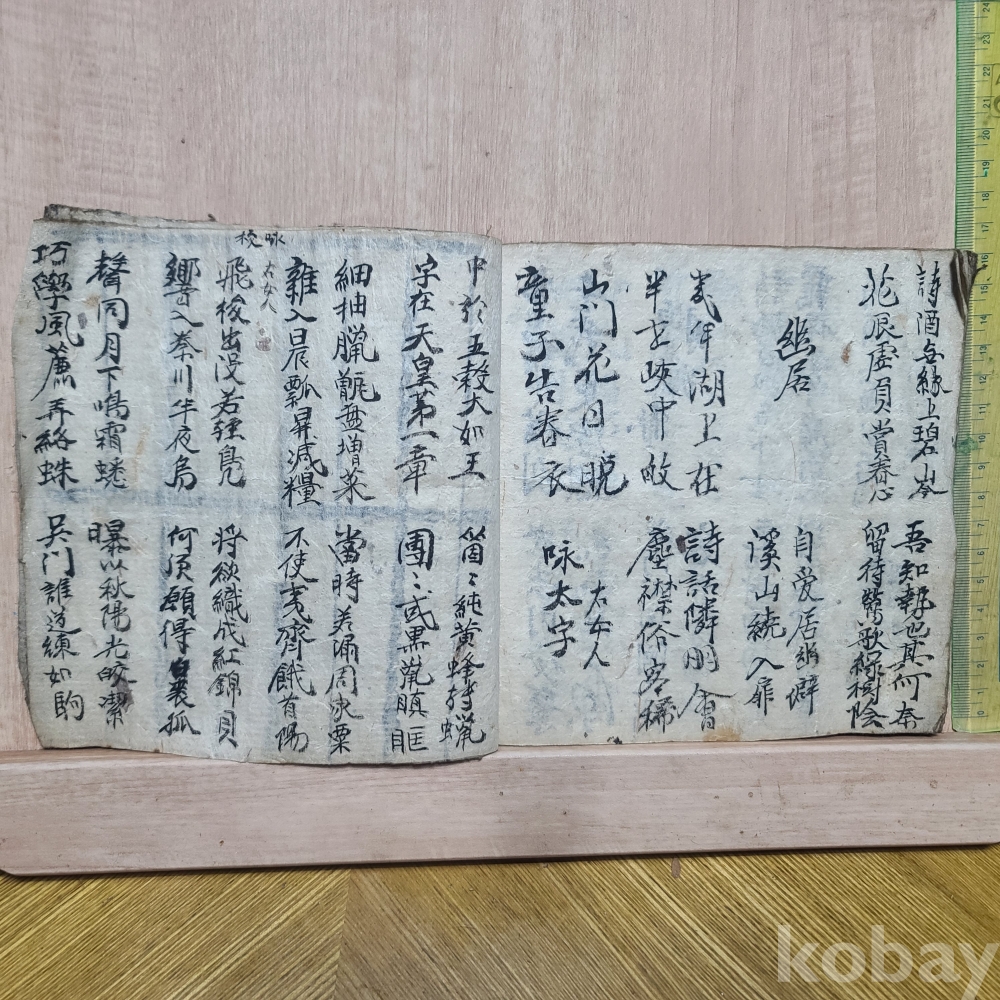 詩酒与緣上碧岑 吾知勢也其何奈
花辰虛負賞春心 留待鶯歌綠樹陰
幽居 自愛居幽僻
溪山繞入扉
半年湖上在 詩話隣朋會
半世峽中 塵襟俗客稀
山門花日晩 右女人
童子告春衣 咏太字
中於五穀大如王 箇〻純黃蜂特蠟
字在天皇第一章 團〻或黑鼠瞋眶
細抽臘甑盈增菜 當時差涌周家粟
雜入晨瓢昇減糧 不使夷齊餓首陽
咏梭
右女人
飛梭出沒若驚鳧 將欲織成紅錦貝
響入秦川半夜烏 何須願得白裘狐
聲同月下鳴霜蟋 曝以秋陽光皎潔
巧學風簾弄絡蛛 吳門誰道練如駒
kobay